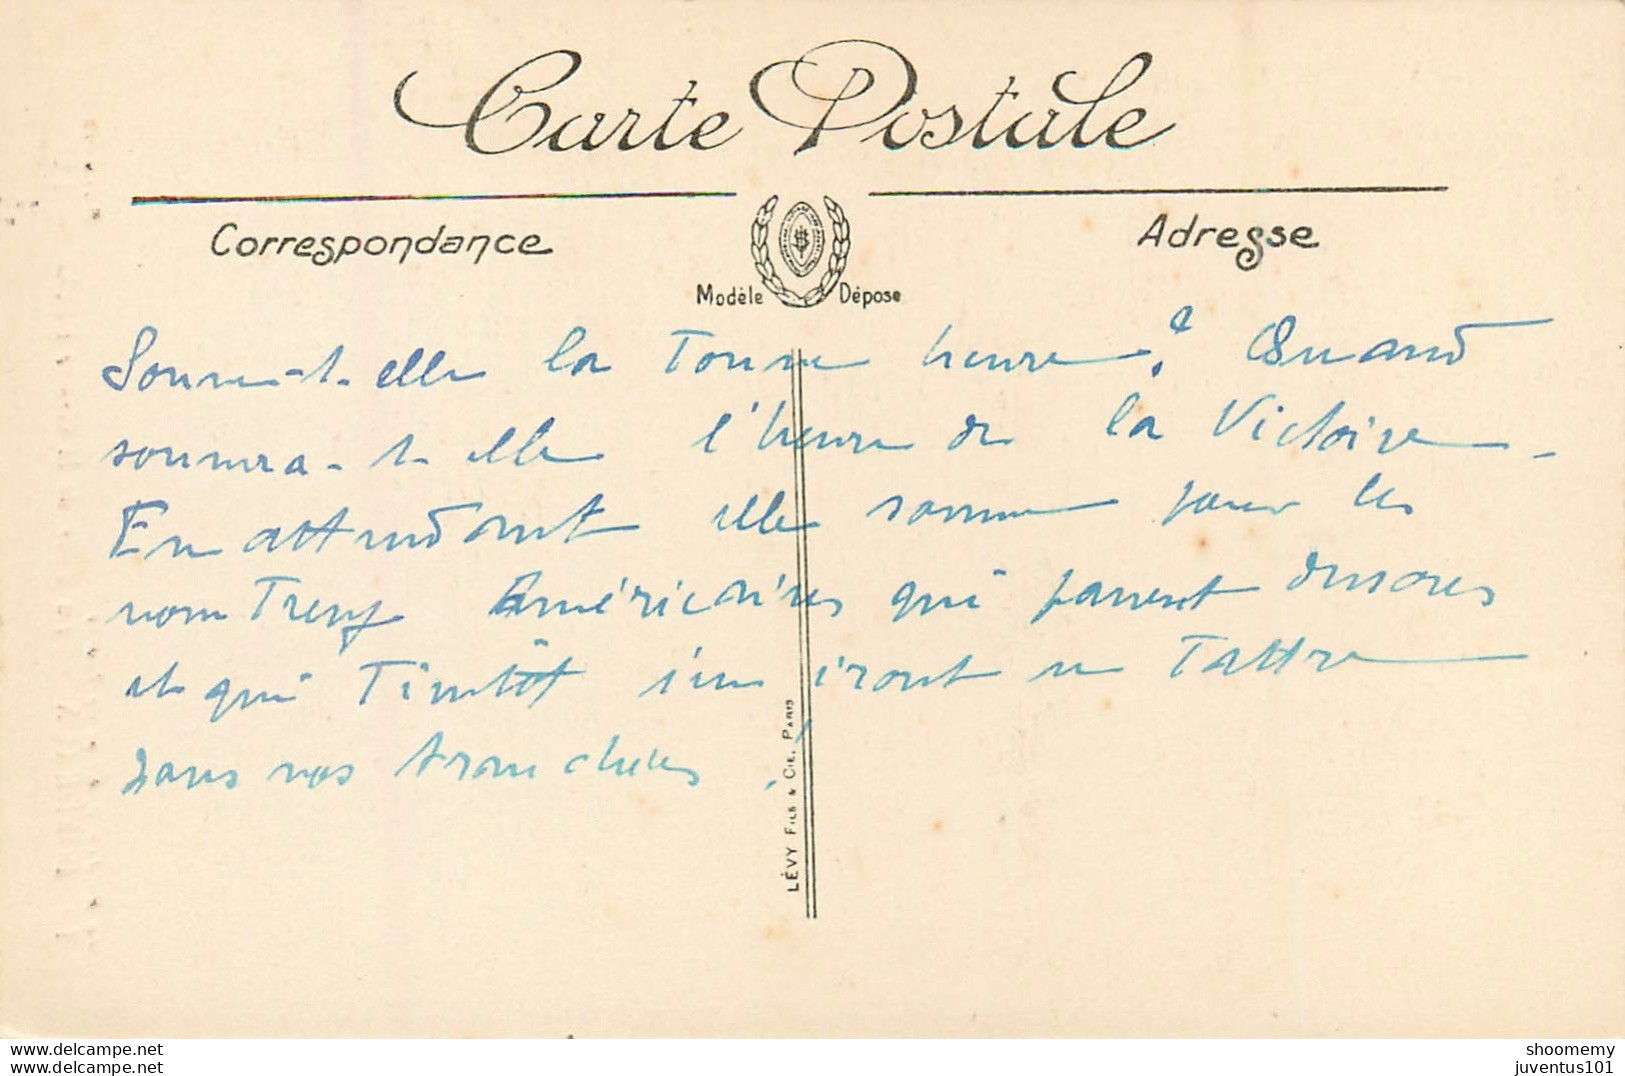 Carte Postale
Correspondance
Adresse
Modèle Déposé
Sonne-t-elle la bonne heure? Quand
sonnera-t-elle l'heure de la Victoire -
En attendant elle sonne pour les
nombreux Américains qui passent dessous
et qui bientôt s'en iront se battre
dans nos tranchées.
LÉVY FILS & CIE, PARIS
shoomemy
juventus101
delcampe.net